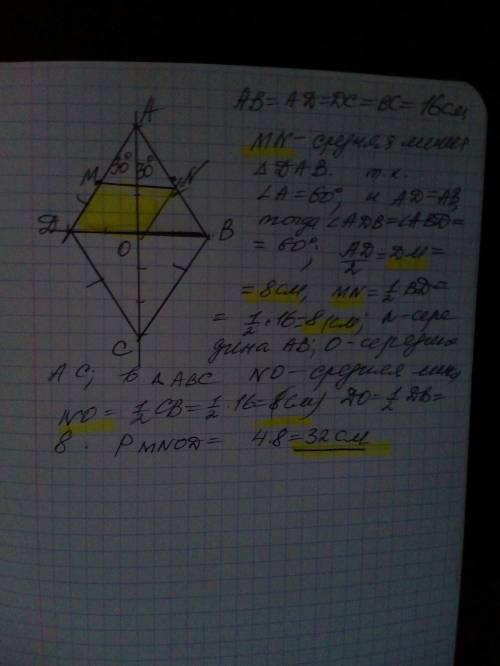 A
30° 30°
M N
D O B
C
AB = AD = DC = BC = 16см
MN - средняя линия
△DAB. т.к.
∠A = 60°, и AD = AB,
тогда ∠ADB = ∠ABD =
= 60°; AD/2 = DM =
= 8см, MN = 1/2 BD =
= 1/2 · 16 = 8см; N - сере
дина AB; O - середина
AC; в △ABC NO - средняя лин
NO = 1/2 CB = 1/2 · 16 = 8см) DO = 1/2 DB =
8. P MNOD = 4·8 = 32см